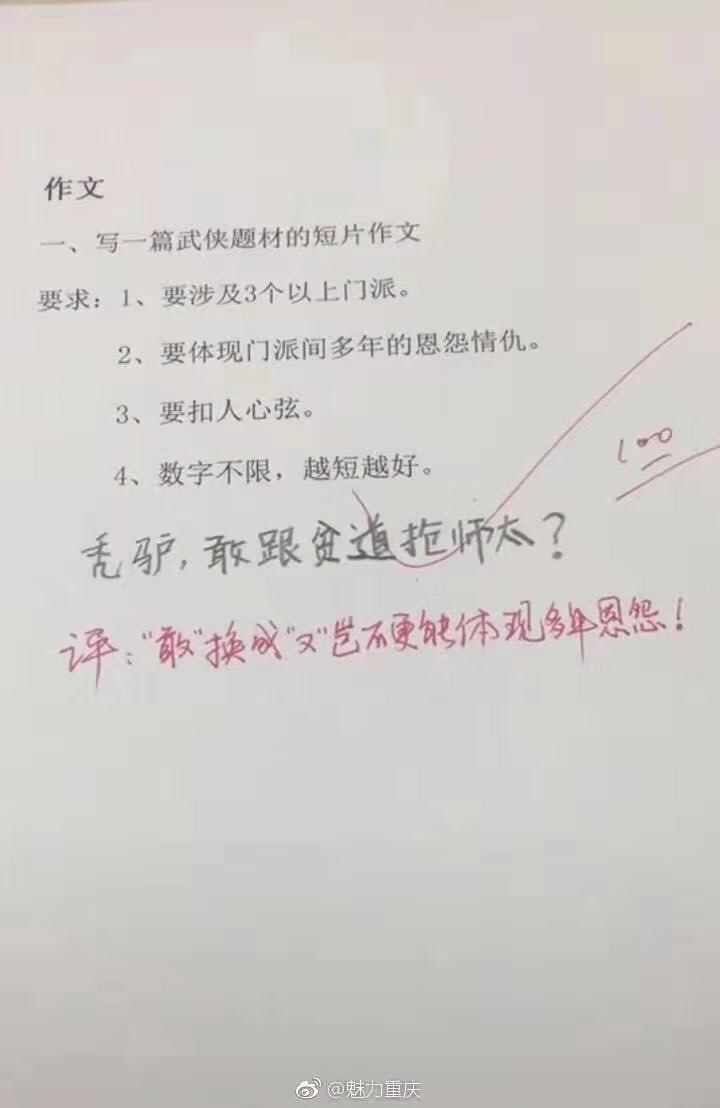 作文
一、写一篇武侠题材的短片作文
要求：1、要涉及3个以上门派。
2、要体现门派间多年的恩怨情仇。
3、要扣人心弦。
4、数字不限，越短越好。
100
秃驴，敢跟贫道抢师太？
评：“敢”换成“又”岂不更能体现多年恩怨！
@魅力重庆